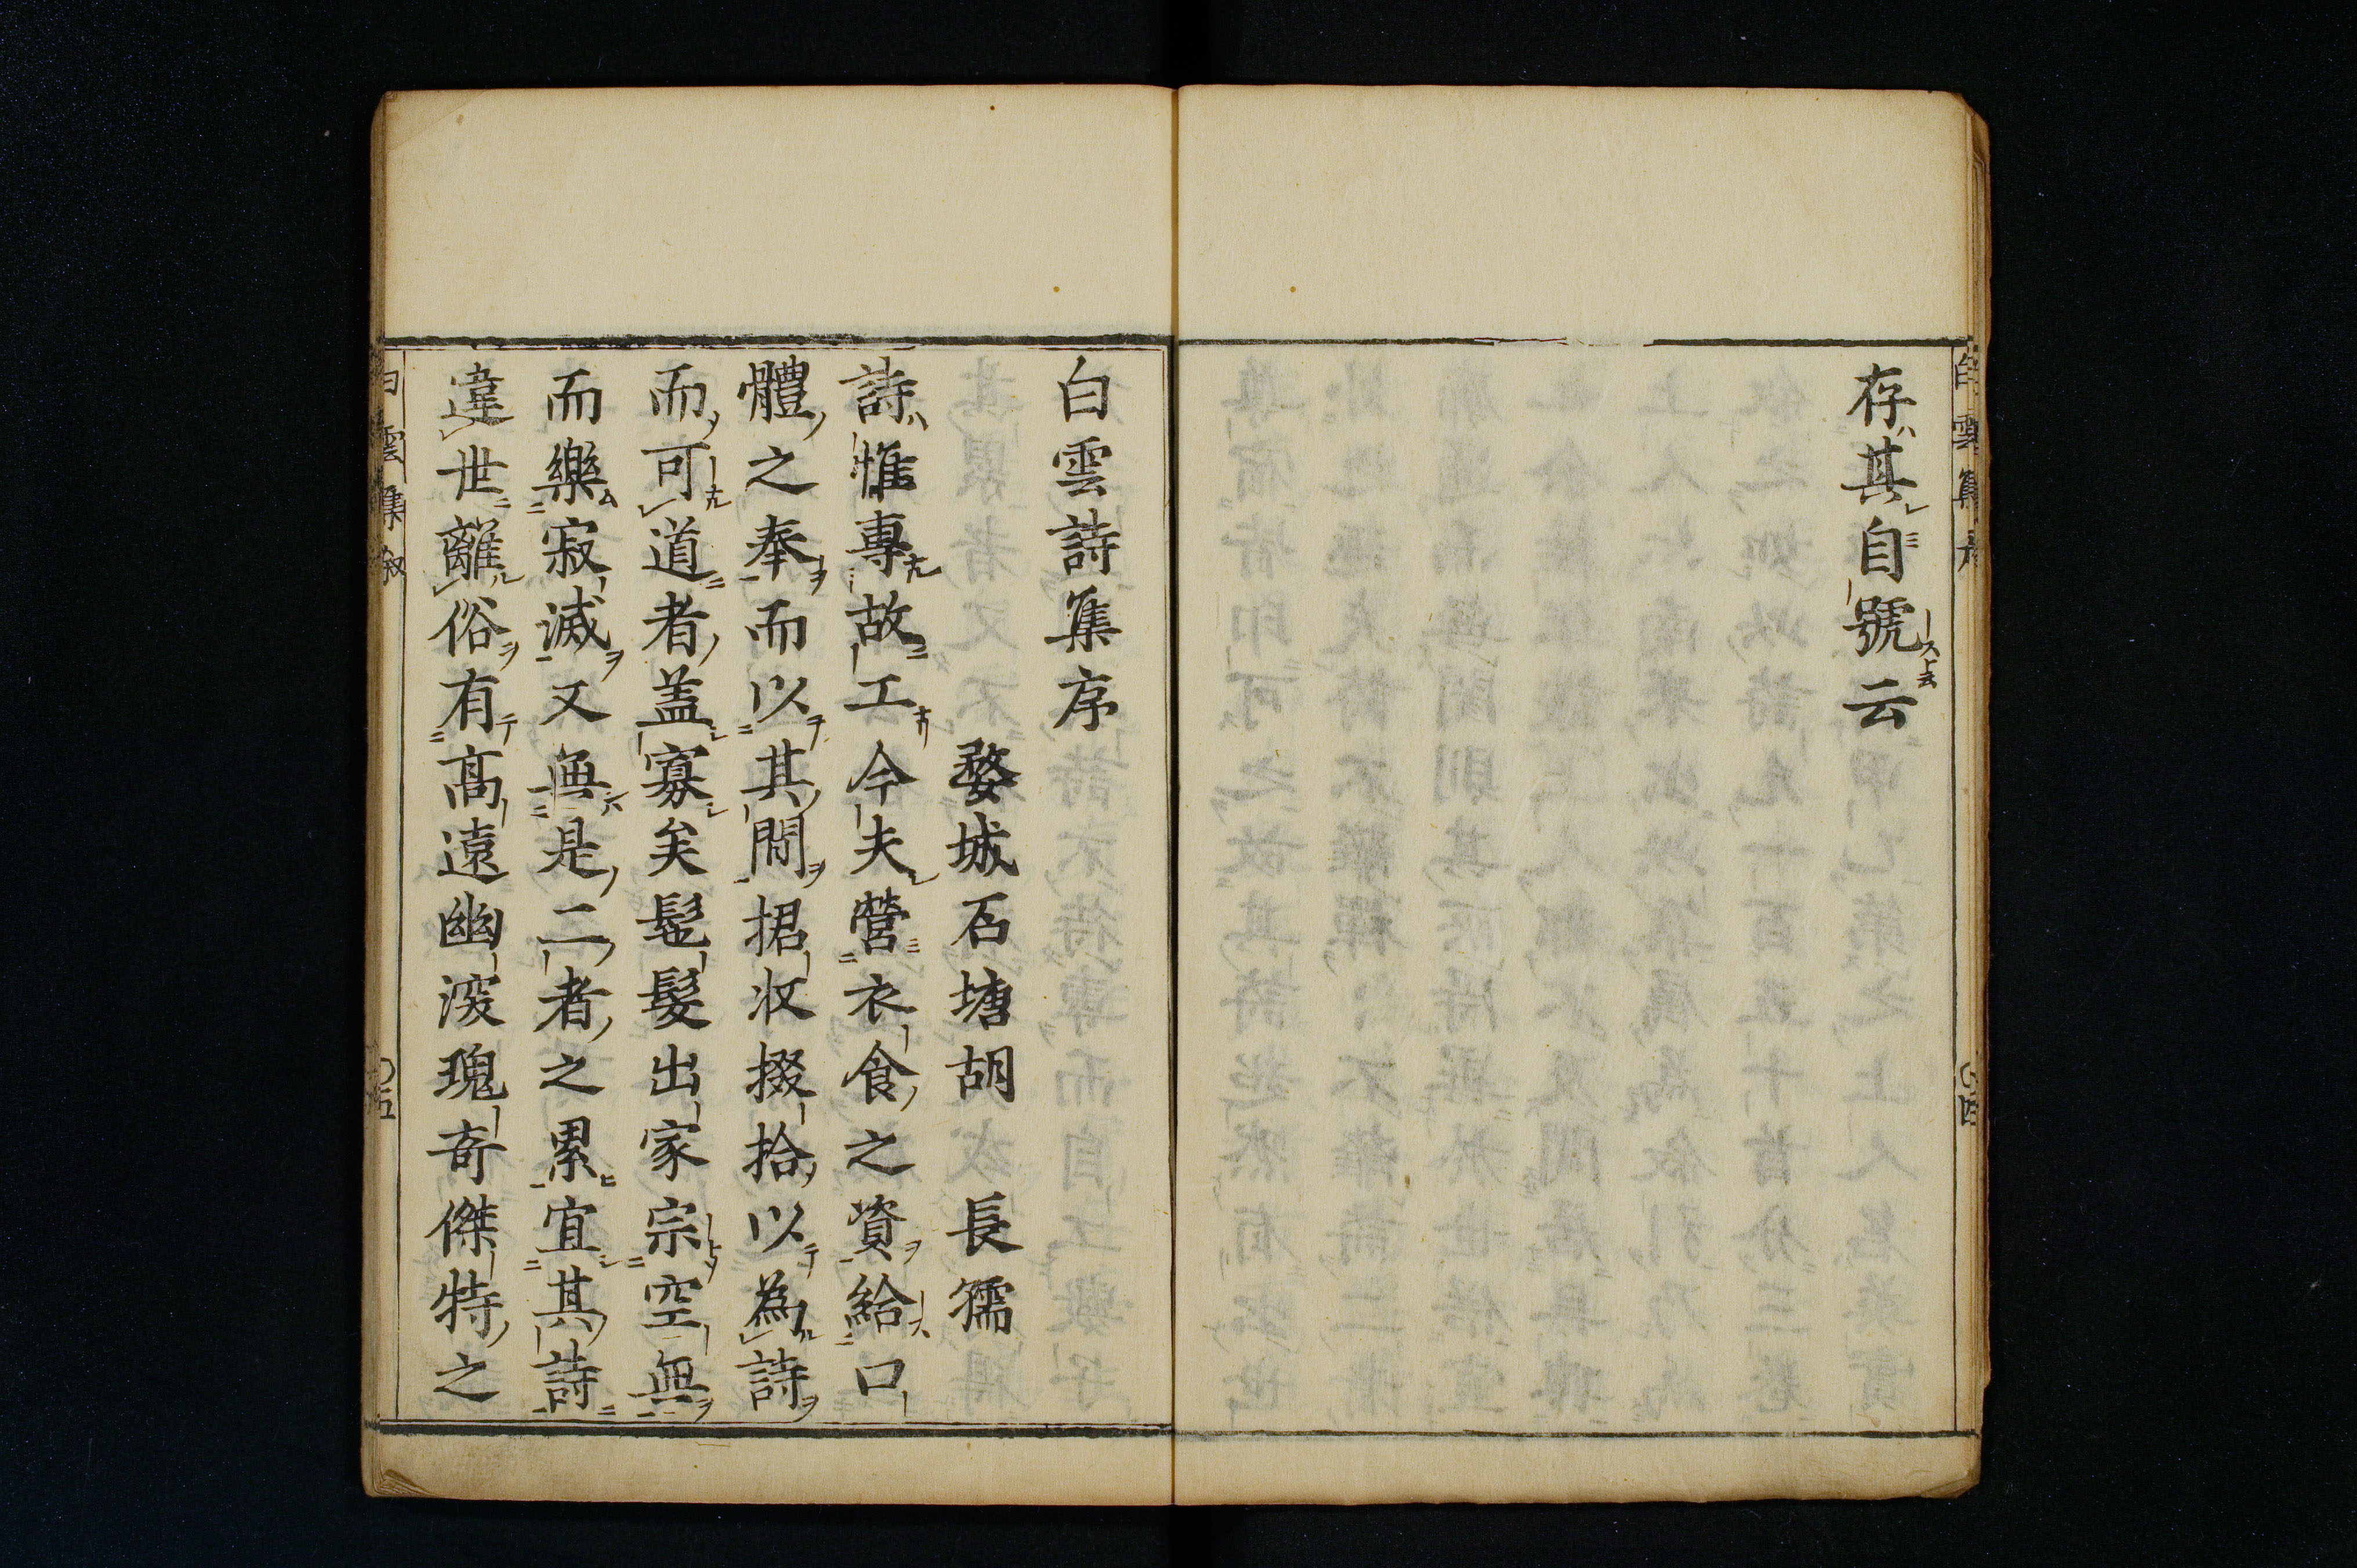 存其自號云
白雲詩集序
婺城石塘胡　長孺
詩惟專故工今夫營衣食之資給口
體之奉而以其間捃収掇拾以為詩
而可道者盖寡矣髡髮出家宗空無
而樂寂滅又無是二者之累宜其詩
違世離俗有髙遠幽深瑰奇傑特之
白雲集叙